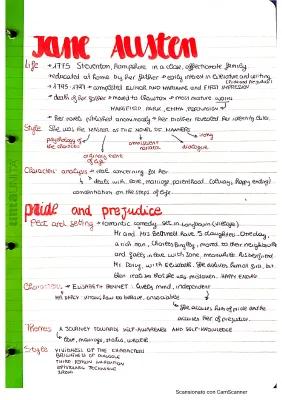 JANE AUSTEN
Life → 1775 Steventon, Hampshire in a close, affectionate family.
→ educated at home by her father → early interest in literature and writing
→ 1795-1797 → completed ELINOR AND MARIANNE and FIRST IMPRESSION
→ death of her father → moved to Chawton → most mature works
MANSFIELD PARK, EMMA, PERSUASION
→ her novels published anonymously → her brother revealed her identity
Style She was the MASTER OF THE NOVEL OF MANNERS
psychology of the characters
omniscient narrator
irony
dialogue
ordinary event of life
Character analysis →
→ deals with love, marriage, parenthood (happy ending)
on the steps of life.
pride and prejudice
Plot and setting → romantic comedy set in Longbourn (village)
Mr and Mrs Bennet have 5 daughters. One day,
a rich man, Charles Bingley, moved to their neighbourhood
and falls in love with Jane, meanwhile his friend
Mr Darcy, with Elizabeth. She
HAPPY END
Characters → ELISABETH BENNET: lively mind, independent
MR DARCY:
→ she accuses him of pride and he
accuses her of prejudice.
Themes A JOURNEY TOWARDS SELF-AWARENESS AND SELF-KNOWLEDGE
↳ love, marriage, status, wealth
Style → VIVIDNESS OF THE CHARACTERS
BRILLIANCE OF DIALOGUE
THIRD PERSON NARRATION
TECHNIQUE
IRONY
Scansionato con CamScanner